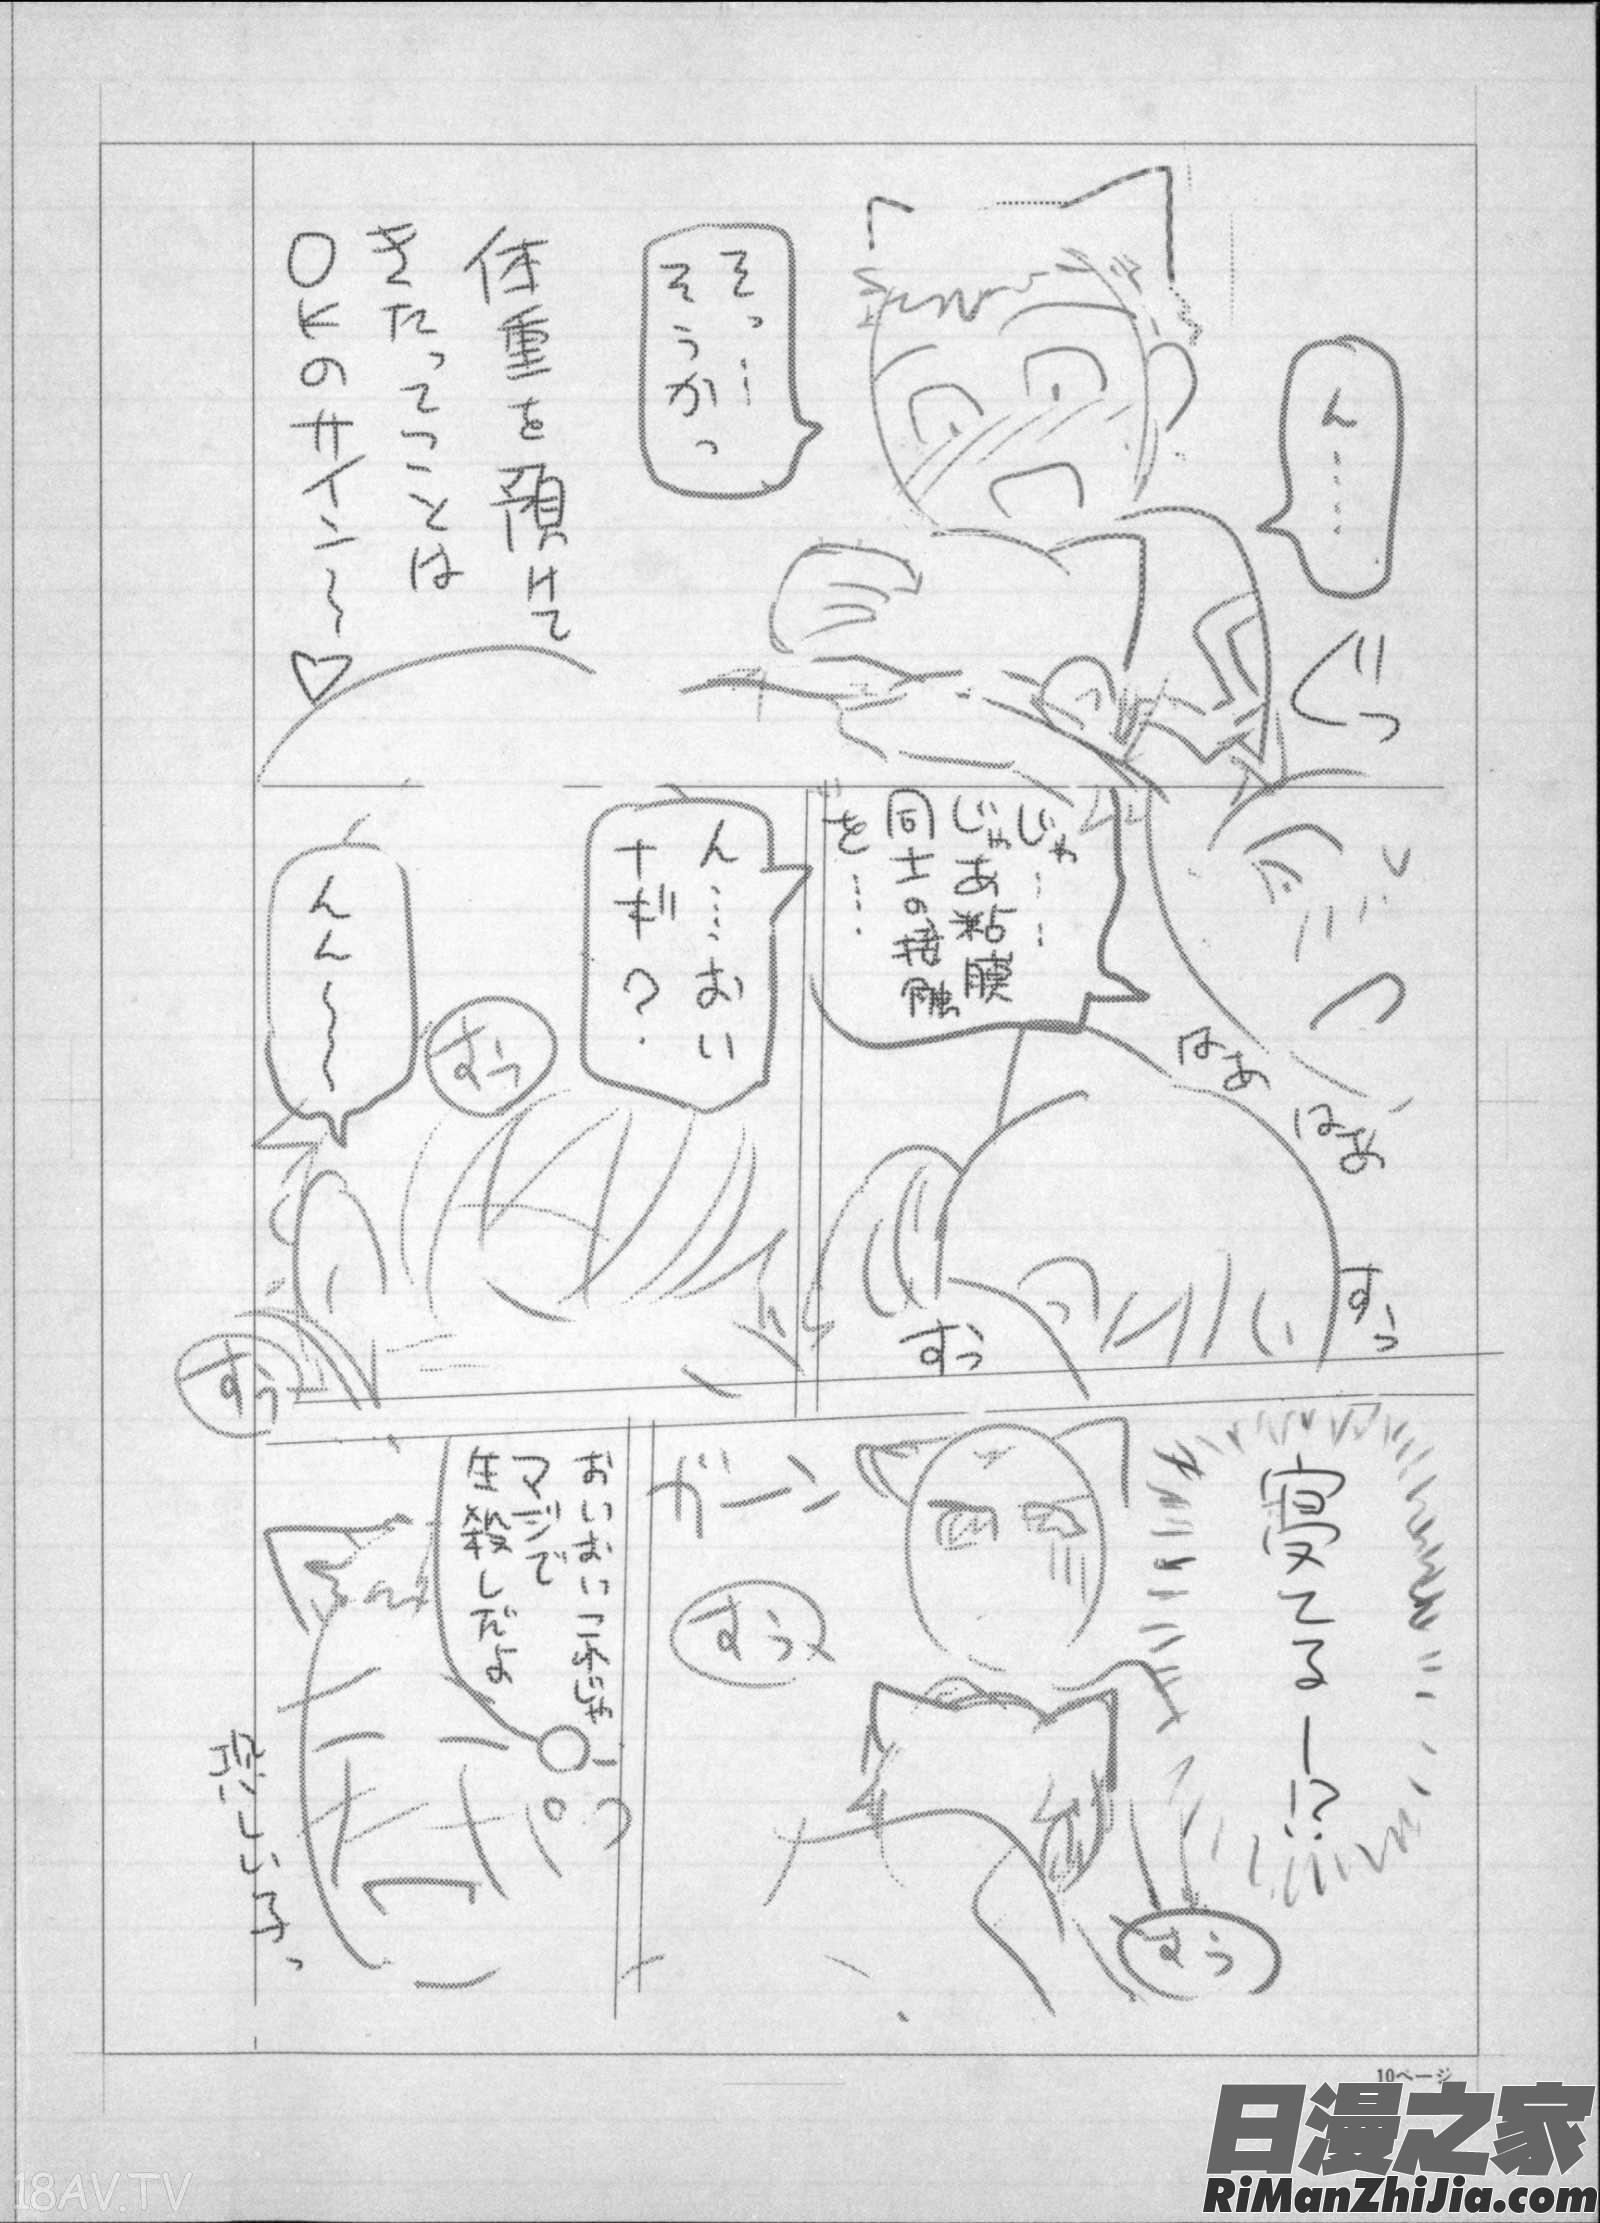 ん……
ぐっ
そっ…
そうかっ
体重を預けて
きたってことは
OKのサイン～♡
じゃ……
じゃあ粘膜
同士の接触
を……
はあ
はあ
すぅ
すぅ
ん……おい
ナギ？
すぅ
んん～～
すぅ
寝てるー!?
ガーン
すぅ
すぅ
おいおいこれじゃ
マジで
生殺しだよ
恐ろしい子っ
10ページ
日漫之家
RiManZhiJia.com
18AV.TV